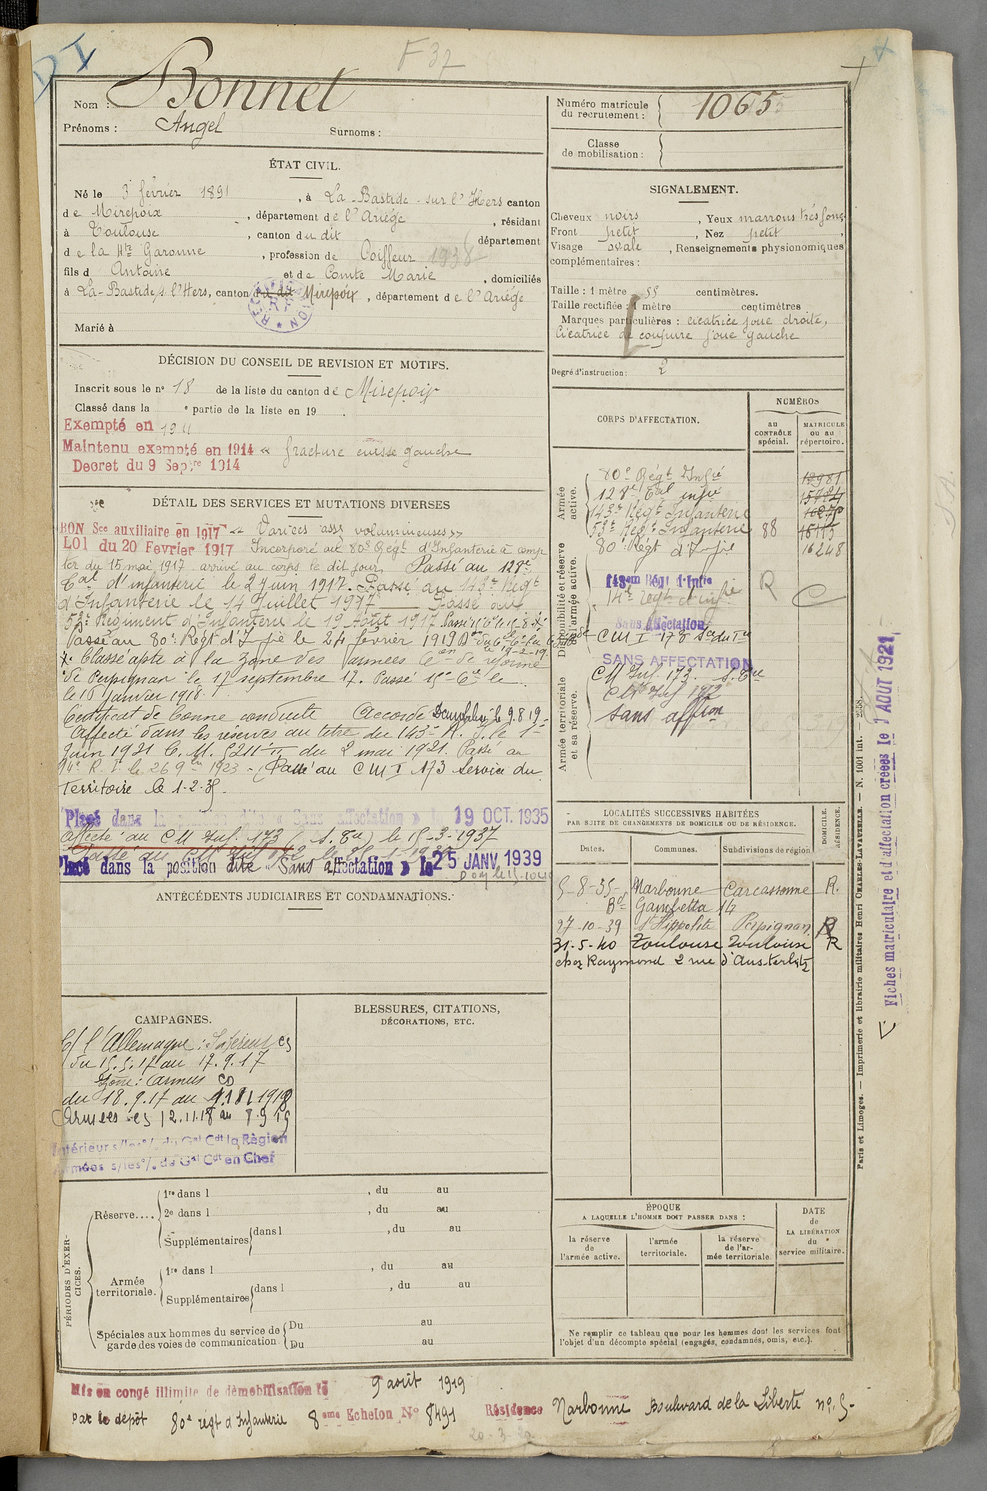 DI
F 37
Nom : Bonnet
Prénoms : Angel Surnoms :
ÉTAT CIVIL.
Né le 3 février 1891, à La-Bastide-sur l'Hers canton
de Mirepoix, département de l'Ariège, résidant
à Toulouse, canton du dit département
de la Hte Garonne, profession de Coiffeur 1938
fils d Antoine et de Comte Marie, domiciliés
à La-Bastide s l'Hers, canton du dit Mirepoix, département de l'Ariège
Marié à
DÉCISION DU CONSEIL DE REVISION ET MOTIFS.
Inscrit sous le no 18 de la liste du canton de Mirepoix
Classé dans la e partie de la liste en 19 .
Exempté en 1911
Maintenu exempté en 1914 « fracture cuisse gauche
Decret du 9 Septre 1914
DÉTAIL DES SERVICES ET MUTATIONS DIVERSES
BON Sce auxiliaire en 1917 « Varices assz volumineuses »
LOI du 20 Fevrier 1917 Incorporé au 80e Régt d'Infanterie à comp
ter du 15 mai 1917 arrivé au corps le dit jour Passé au 128e
Bal d'infanterie le 2 juin 1917. Passé au 143e Régt
d'Infanterie le 14 Juillet 1917 Passé au
53e Régiment d'Infanterie le 19 Août 1917
Passé au 80e Régt d'I fie le 24 février 1919
Classé apte à la zone des armées Con de réforme
de Perpignan le 17 septembre 17. Passé 15e Cie le
le 16 janvier 1918.
Certificat de bonne conduite Accordé le 9.8.19
Affecté dans les réserves au titre du 143e R. I. le 1er
Juin 1921 C. M. 5211 du 2 mai 1921. Passé au
14e R. I. le 26 9bre 1923 - Passé au C M I 173 Service du
Territoire le 1.2.35.
Placé dans la position dite « Sans affectation » le 19 OCT. 1935
Affecté au C M Inf. 173 (S. Eu) le 15-3-1937
Placé dans la position dite Sans affectation » le 25 JANV 1939
ANTÉCÉDENTS JUDICIAIRES ET CONDAMNATIONS.
CAMPAGNES.
C/ l'Allemagne : Intérieur CS
du 15.5.17 au 17.9.17
Zone : armées CD
du 18.9.17 au 11 1918
Armées CS 12.11.18 au 8.9 19
Intérieur s/les o/. du Gal Cdt la Région
Armées s/les o/. du Gal Cdt en Chef
BLESSURES, CITATIONS,
DÉCORATIONS, ETC.
PÉRIODES D'EXERCICES.
Réserve....
1re dans l , du au
2e dans l , du au
Supplémentaires dans l , du au
Armée territoriale.
1re dans l , du au
Supplémentaires dans l , du au
Spéciales aux hommes du service de garde des voies de communication.
Du au
Du au
Numéro matricule du recrutement : 1065
Classe de mobilisation :
SIGNALEMENT.
Cheveux noirs, Yeux marrons très fonc
Front petit, Nez petit,
Visage ovale, Renseignements physionomiques
complémentaires :
Taille : 1 mètre 55 centimètres.
Taille rectifiée : 1 mètre centimètres
Marques particulières : cicatrice joue droite,
Cicatrice de coupure joue gauche
Degré d'instruction : 2
CORPS D'AFFECTATION.
NUMÉROS
au CONTRÔLE spécial.
MATRICULE ou au répertoire.
Armée active.
80e Régt Infie 12981
128e Bal infie
143e Régt Infanterie
53e Régt Infanterie 88 16115
80e Régt d'I fie 16248
Disponibilité et réserve de l'armée active.
143em Régt d'Infie R C
14e régt d'infie
Sans affectation
C M I 173 Sce du Tre
SANS AFFECTATION
Armée territoriale et sa réserve.
CM Inf. 173. S. Eu
CM Inf 173
Sans affon
LOCALITÉS SUCCESSIVES HABITÉES
PAR SUITE DE CHANGEMENTS DE DOMICILE OU DE RÉSIDENCE.
Dates. Communes. Subdivisions de région
DOMICILE. RÉSIDENCE.
5-8-35 Narbonne Carcassonne R.
Bd Gambetta 14
27-10-39 St Hippolite Perpignan R
31-5-40 Toulouse Toulouse R
chez Raymond 2 rue d'Austerlitz
ÉPOQUE
A LAQUELLE L'HOMME DOIT PASSER DANS :
la réserve de l'armée active.
l'armée territoriale.
la réserve de l'armée territoriale.
DATE de LA LIBÉRATION du service militaire.
Ne remplir ce tableau que pour les hommes dont les services font
l'objet d'un décompte spécial (engagés, condamnés, omis, etc.).
Paris et Limoges. — Imprimerie et librairie militaires Henri CHARLES-LAVAUZELLE. — N. 1001 int. — 2558.
Fiches matriculaire et d'affectation créées le 1 AOUT 1921
Mis en congé illimité de démobilisation le 9 août 1919
par le dépôt 80e régt d'Infanterie 8eme Echelon No 8491 Résidence Narbonne Boulevard de la Liberté no 5-
20-3-20